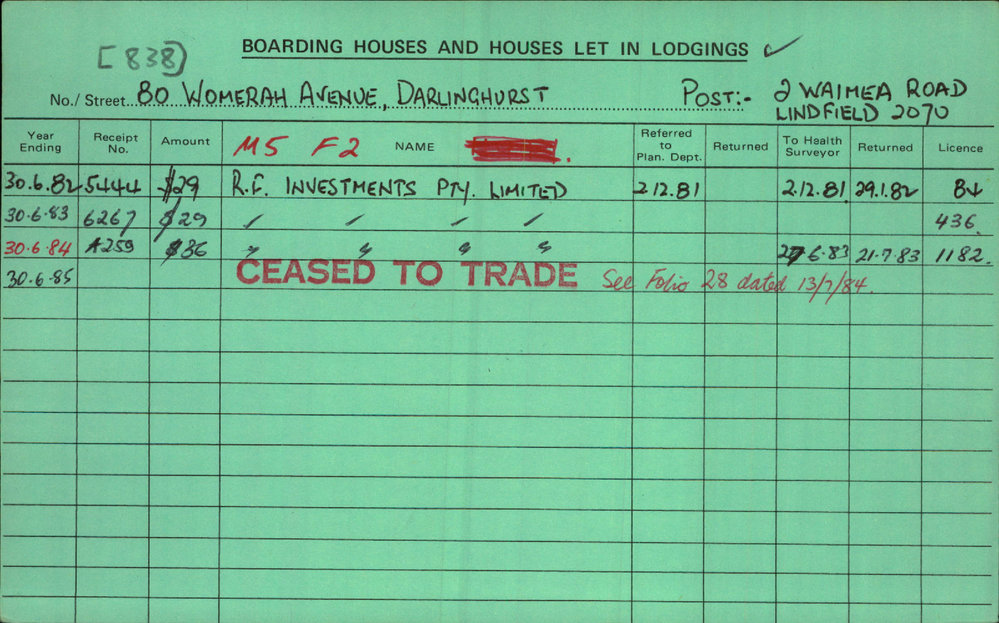 [838]
BOARDING HOUSES AND HOUSES LET IN LODGINGS ✓
No./Street 80 WOMERAH AVENUE, DARLINGHURST POST:- 2 WAIMEA ROAD
LINDFIELD 2070
Year Ending Receipt No. Amount M5 F2 NAME Referred to Plan. Dept. Returned To Health Surveyor Returned Licence
30.6.82 5444 $29 R.F. INVESTMENTS PTY. LIMITED 2.12.81 2.12.81 29.1.82 84
30.6.83 6267 $29 " " " " 436.
30.6.84 A259 $36 " " " " 27.6.83 21.7.83 1182.
30.6.85 CEASED TO TRADE See Folio 28 dated 13/7/84.